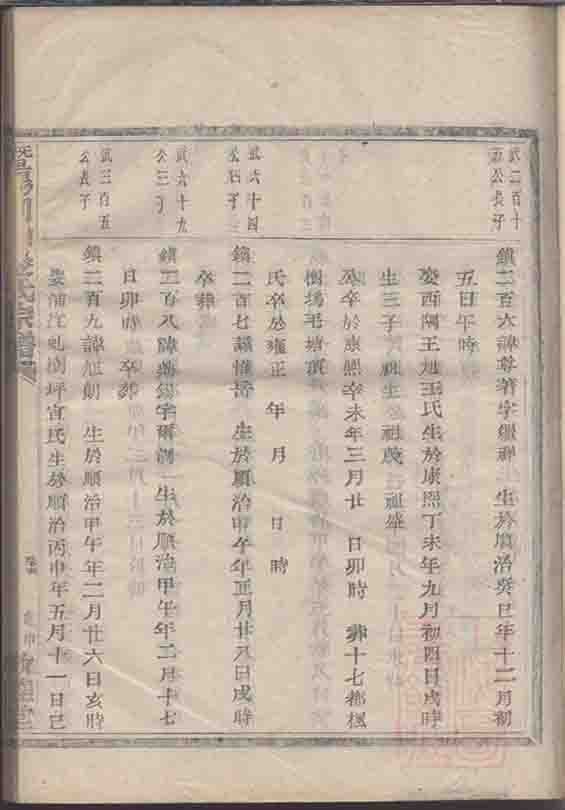 武二百十
五公長子
鎮二百六諱尊著字繼禪 生於順治癸巳年十二月初
五日午時
娶西隅王旭王氏生於康熙丁未年九月初四日戌時
生三子 祖生 祖茂 祖盛
卒於康熙辛未年三月廿 日卯時 葬十七都楓
樹塢毛塘頂
氏卒於雍正 年 月 日 時
武六十四
鎮二百七諱惟岳 生於順治甲午年正月廿八日戌時
卒葬
武六十九
公三子
鎮二百八諱 錫字爾 生於順治甲午年二月十七
日卯時 卒葬
武三百五
公長子
鎮二百九諱旭朝 生於順治甲午年二月廿六日亥時
娶浦江 樹坪宣氏生於順治丙申年五月十一日巳
氏宗譜